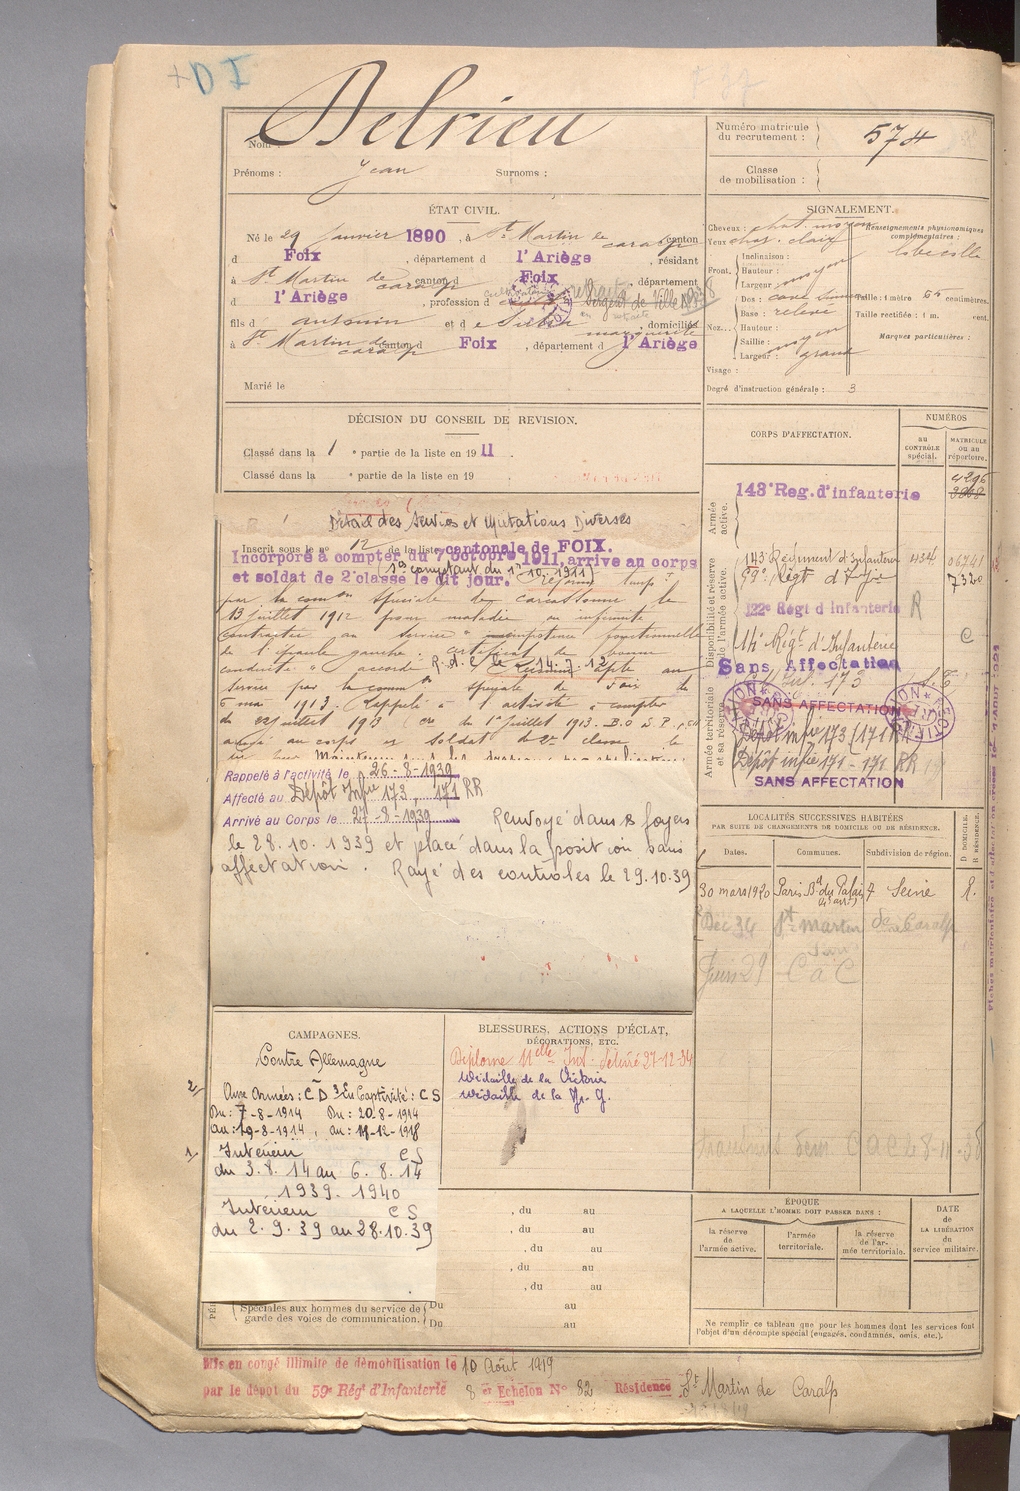 + D I
Nom : Delrieu
Prénoms : Jean Surnoms :
Numéro matricule du recrutement : 574
Classe de mobilisation :
ÉTAT CIVIL.
Né le 29 Janvier 1890, à St Martin de Caralp canton
d Foix, département d l'Ariège, résidant
à St Martin de Caralp canton d Foix, département
d l'Ariège, profession d cultivateur Sergent de Ville
fils d Antonin et d e marguerite, domiciliés
à St Martin de Caralp canton d Foix, département d l'Ariège
Marié le
SIGNALEMENT.
Cheveux : chat. moyen
Yeux chat. clair
Renseignements physionomiques complémentaires :
Front. Inclinaison :
Hauteur : moyen
Largeur
Nez... Dos : cave sinueux
Base : relevé
Hauteur :
Saillie : moyen
Largeur : grand
Visage :
Taille : 1 mètre centimètres.
Taille rectifiée : 1 m. cent.
Marques particulières :
Degré d'instruction générale : 3
DÉCISION DU CONSEIL DE REVISION.
Classé dans la 1 e partie de la liste en 1911.
Classé dans la e partie de la liste en 19
Détail des Services et Mutations Diverses
Inscrit sous le n° 12 de la liste cantonale de FOIX.
Incorporé à compter du 7 octobre 1911, arrive au corps
(1° comptant du 1er-10-1911)
et soldat de 2e classe le dit jour. réformé temp
par la comon spéciale de Carcassonne le
13 juillet 1912 pour maladie ou infirmité
contractée au service " impotence fonctionnelle
de l'épaule gauche. certificat de bonne
conduite " accordé R. d. C. le 14.7.12
service par la common spéciale de Foix le
6 mai 1913. Rappelé à l'activité à compter
du juillet 1913 (cre du 1er juillet 1913. B.O.
au corps et soldat de 2e classe le
Rappelé à l'activité le 26-8-1939
Affecté au Dépôt Infie 173, 171 RR
Arrivé au Corps le 27-8-1939 Renvoyé dans s foyers
le 28.10.1939 et placé dans la position sans
affectation. Rayé des contrôles le 29.10.39
CORPS D'AFFECTATION.
NUMÉROS
AU CONTRÔLE spécial.
MATRICULE ou au répertoire.
Armée active.
143e Reg. d'infanterie 4296
Disponibilité et réserve de l'armée active.
143 Régiment d'Infanterie 434 06741
59e Régt d'Ifie 7320
122e Régt d'Infanterie R
14e Régt d'Infanterie C
Sans Affectation
Armée territoriale et sa réserve
SANS AFFECTATION
Dépôt infie 173 (171 RR)
Dépôt infie 171 - 171 RR
SANS AFFECTATION
LOCALITÉS SUCCESSIVES HABITÉES
PAR SUITE DE CHANGEMENTS DE DOMICILE OU DE RÉSIDENCE.
Dates. Communes. Subdivision de région. D DOMICILE. R RÉSIDENCE.
30 mars 1920 Paris Bd du Palais 7 Seine R.
Dec 34 St martin de Caralp
Juin 29 C a C
CAMPAGNES.
Contre Allemagne
2/ Aux Armées : C D 3/ En Captivité : C S
Du : 7-8-1914 Du : 20-8-1914
au : 19-8-1914, au : 18-12-1918
1/ Intérieur C S
du 3.8.14 au 6.8.14
1939-1940
Intérieur C S
du 2.9.39 au 28.10.39
BLESSURES, ACTIONS D'ÉCLAT,
DÉCORATIONS, ETC.
Diplome Délivré 27-12-34
Médaille de la Victoire
Médaille de la Gr. G.
, du au
, du au
, du au
, du au
, du au
Spéciales aux hommes du service de garde des voies de communication. Du au
Du au
ÉPOQUE
A LAQUELLE L'HOMME DOIT PASSER DANS :
la réserve de l'armée active.
l'armée territoriale.
la réserve de l'armée territoriale.
DATE DE LA LIBÉRATION du service militaire.
Ne remplir ce tableau que pour les hommes dont les services font
l'objet d'un décompte spécial (engagés, condamnés, omis, etc.).
Mis en congé illimité de démobilisation le 10 Août 1919
par le dépôt du 59e Régt d'Infanterie 8 e Echelon N° 82 Résidence St Martin de Caralp